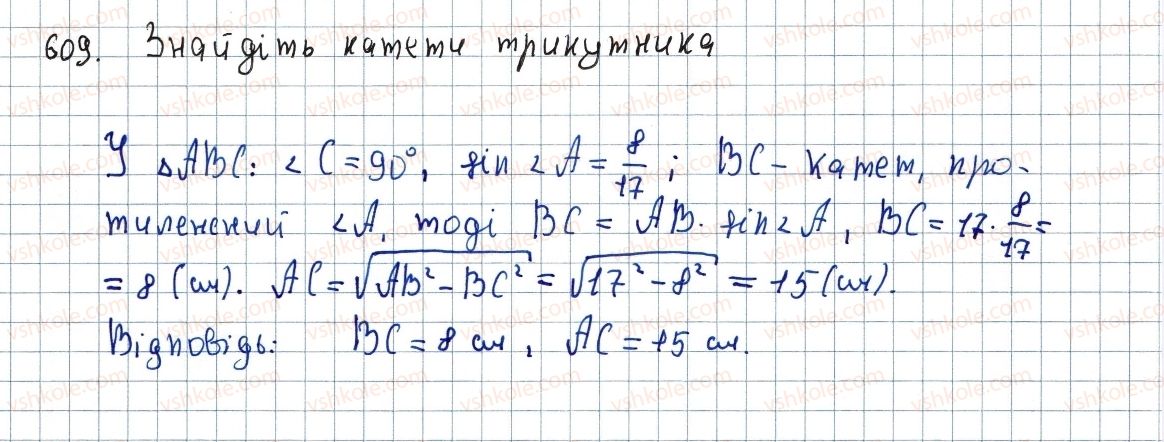 609. Знайдіть катети трикутника
У △ABC: ∠C = 90°, sin∠A = 8/17; BC – катет, про-
тилежний ∠A, тоді BC = AB · sin∠A, BC = 17 · 8/17 =
= 8 (см). AC = √(AB² – BC²) = √(17² – 8²) = 15 (см).
Відповідь: BC = 8 см, AC = 15 см.